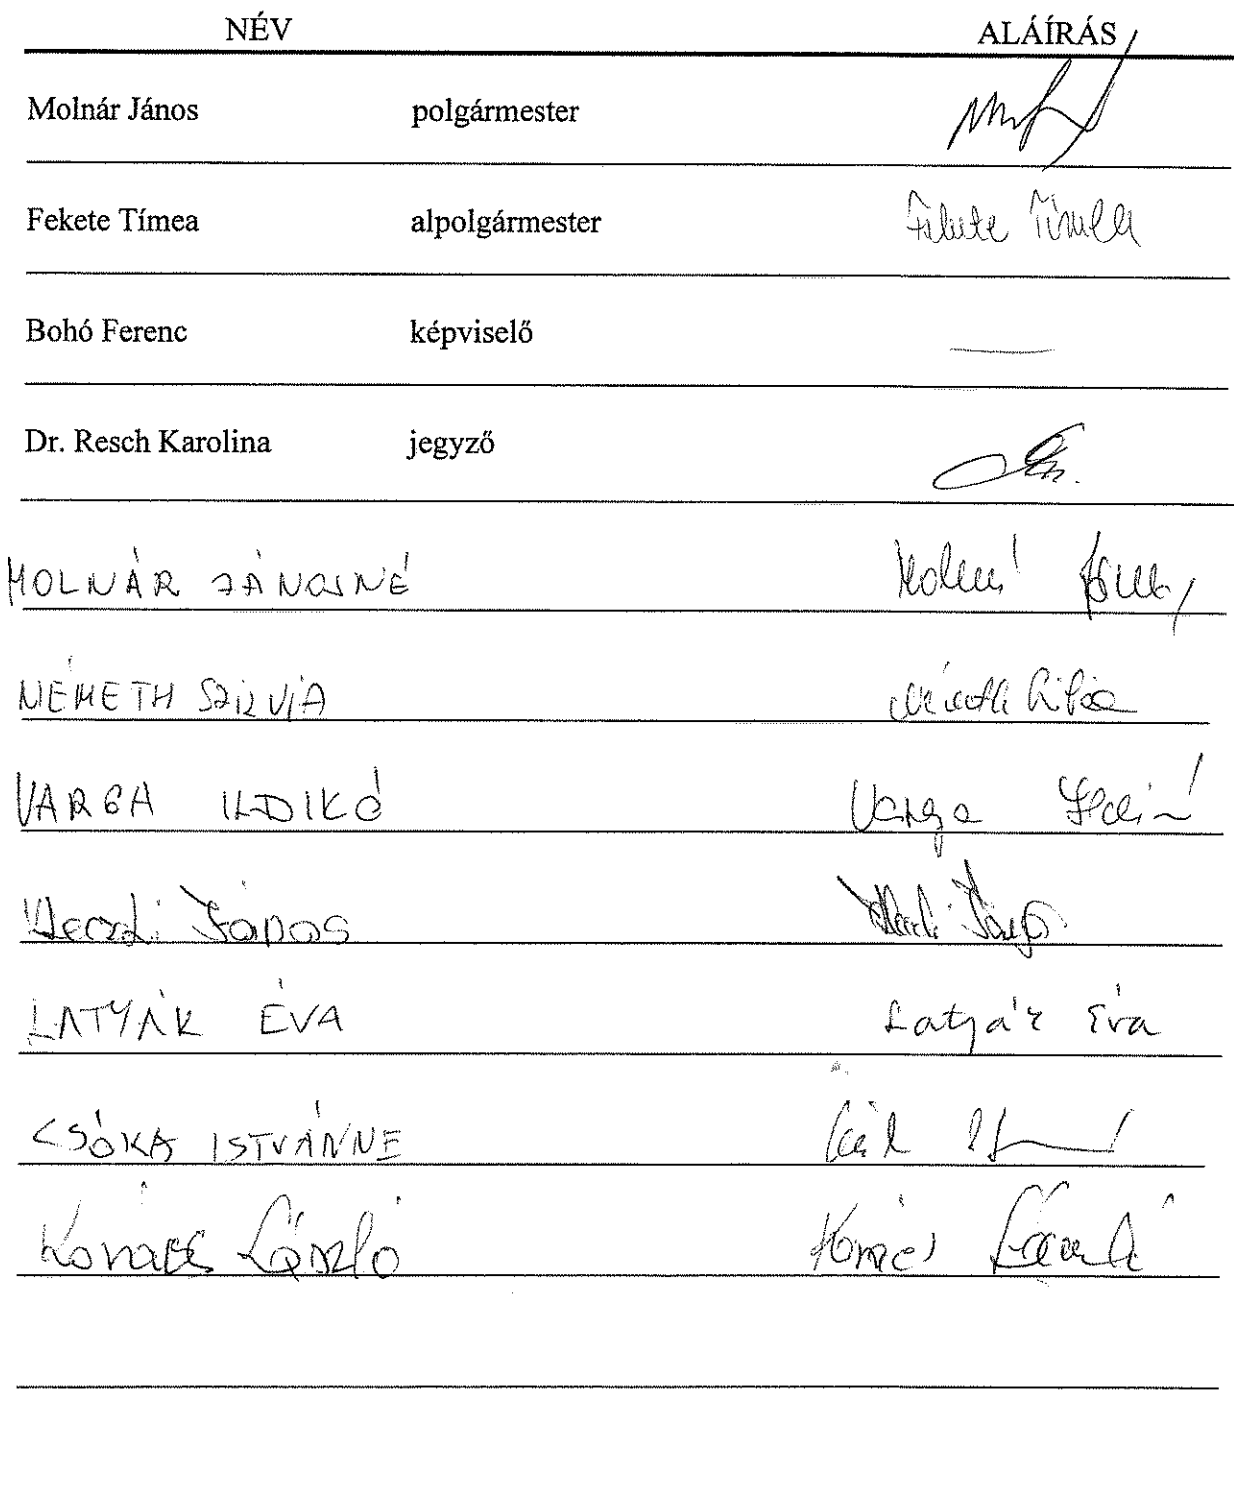 NÉV ALÁÍRÁS
Molnár János polgármester
Fekete Tímea alpolgármester Fekete Tímea
Bohó Ferenc képviselő
Dr. Resch Karolina jegyző
MOLNÁR JÁNOSNÉ Molnár
NÉMETH SZILVIA Németh Szilvia
VARGA ILDIKÓ Varga Ildikó
János János
LATYÁK ÉVA Latyák Éva
CSÓKA ISTVÁNNE
Kovács László Kovács László